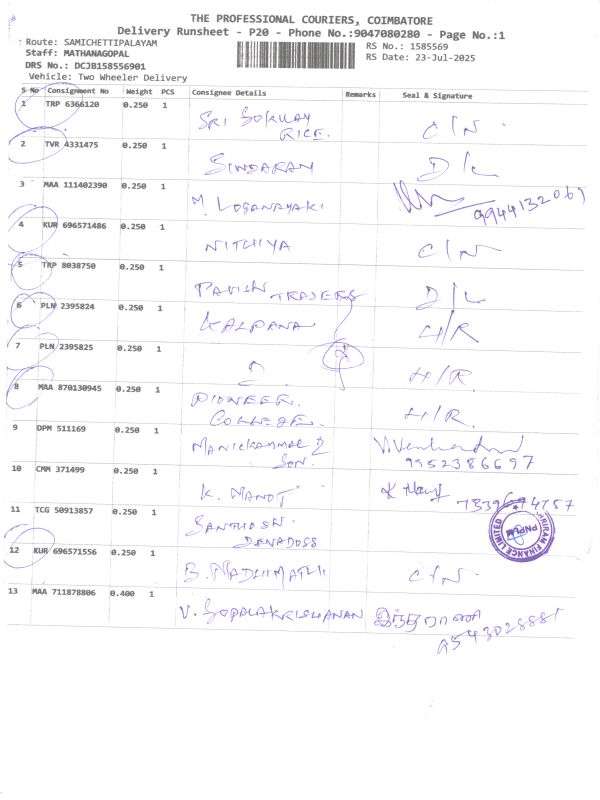 THE PROFESSIONAL COURIERS, COIMBATORE
Delivery Runsheet - P20 - Phone No.:9047080280 - Page No.:1
Route: SAMICHETTIPALAYAM
RS No.: 1585569
Staff: MATHANAGOPAL
RS Date: 23-Jul-2025
DRS No.: DCJB158556901
Vehicle: Two Wheeler Delivery
S No Consignment No Weight PCS Consignee Details Remarks Seal & Signature
1 TRP 6366120 0.250 1 SRI GOKULAY C/N
RICE.
2 TVR 4331475 0.250 1 SINDARAN D/L
3 MAA 111402390 0.250 1 M. LOGANAYAKI 9944132069
4 KUR 696571486 0.250 1 NITHIYA C/N
5 TRP 8038750 0.250 1 PAVISH TRADERS D/L
6 PLN 2395824 0.250 1 KALPANA H/R
7 PLN 2395825 0.250 1 H/R.
8 MAA 870130945 0.250 1 PIONEER. H/R.
COLLEGE.
9 DPM 511169 0.250 1 MANICKAMMAL 2
SON. 9952386697
10 CMM 371499 0.250 1 K. NANDT
11 TCG 50913857 0.250 1 SANTHOSH.
DEVADOSS
SHRIRAM FINANCE LIMITED
PNPLM
12 KUR 696571556 0.250 1 B. MADHIMATHI C/N
13 MAA 711878806 0.400 1 V. GOPALAKRISHANAN இந்திராணி
9543028881